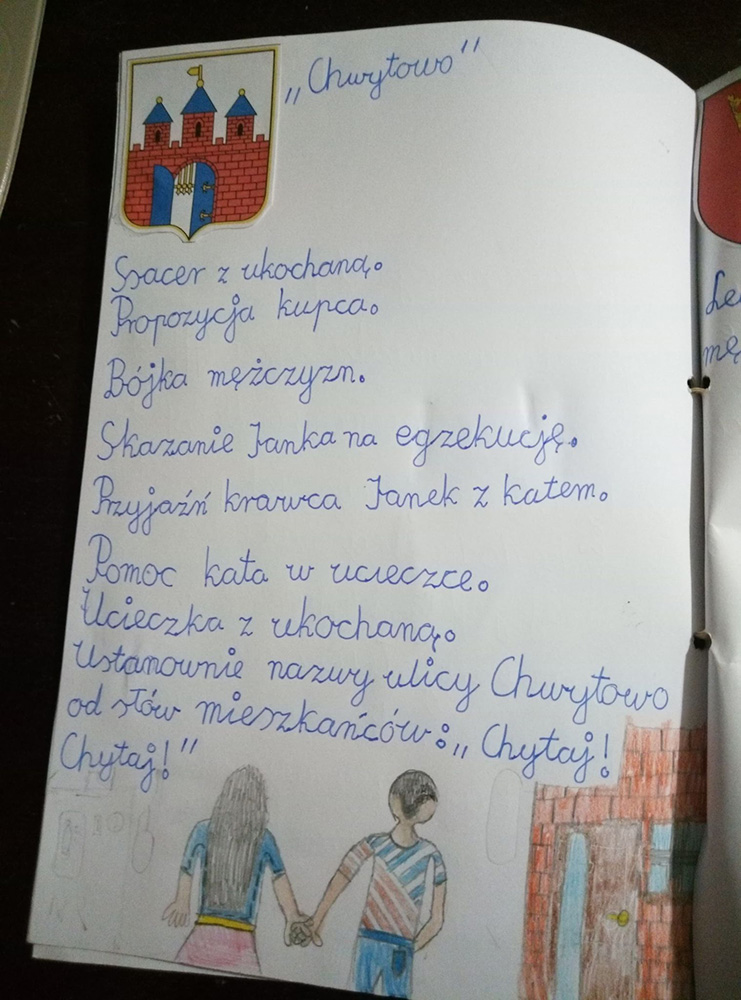 „Chwytowo"
Spacer z ukochaną.
Propozycja kupca.
Bójka mężczyzn.
Skazanie Janka na egzekucję.
Przyjaźń krawca Janek z katem.
Pomoc kata w ucieczce.
Ucieczka z ukochaną.
Ustanownie nazwy ulicy Chwytowo
od słów mieszkańców: „Chytaj!
Chytaj!"
Le
mę